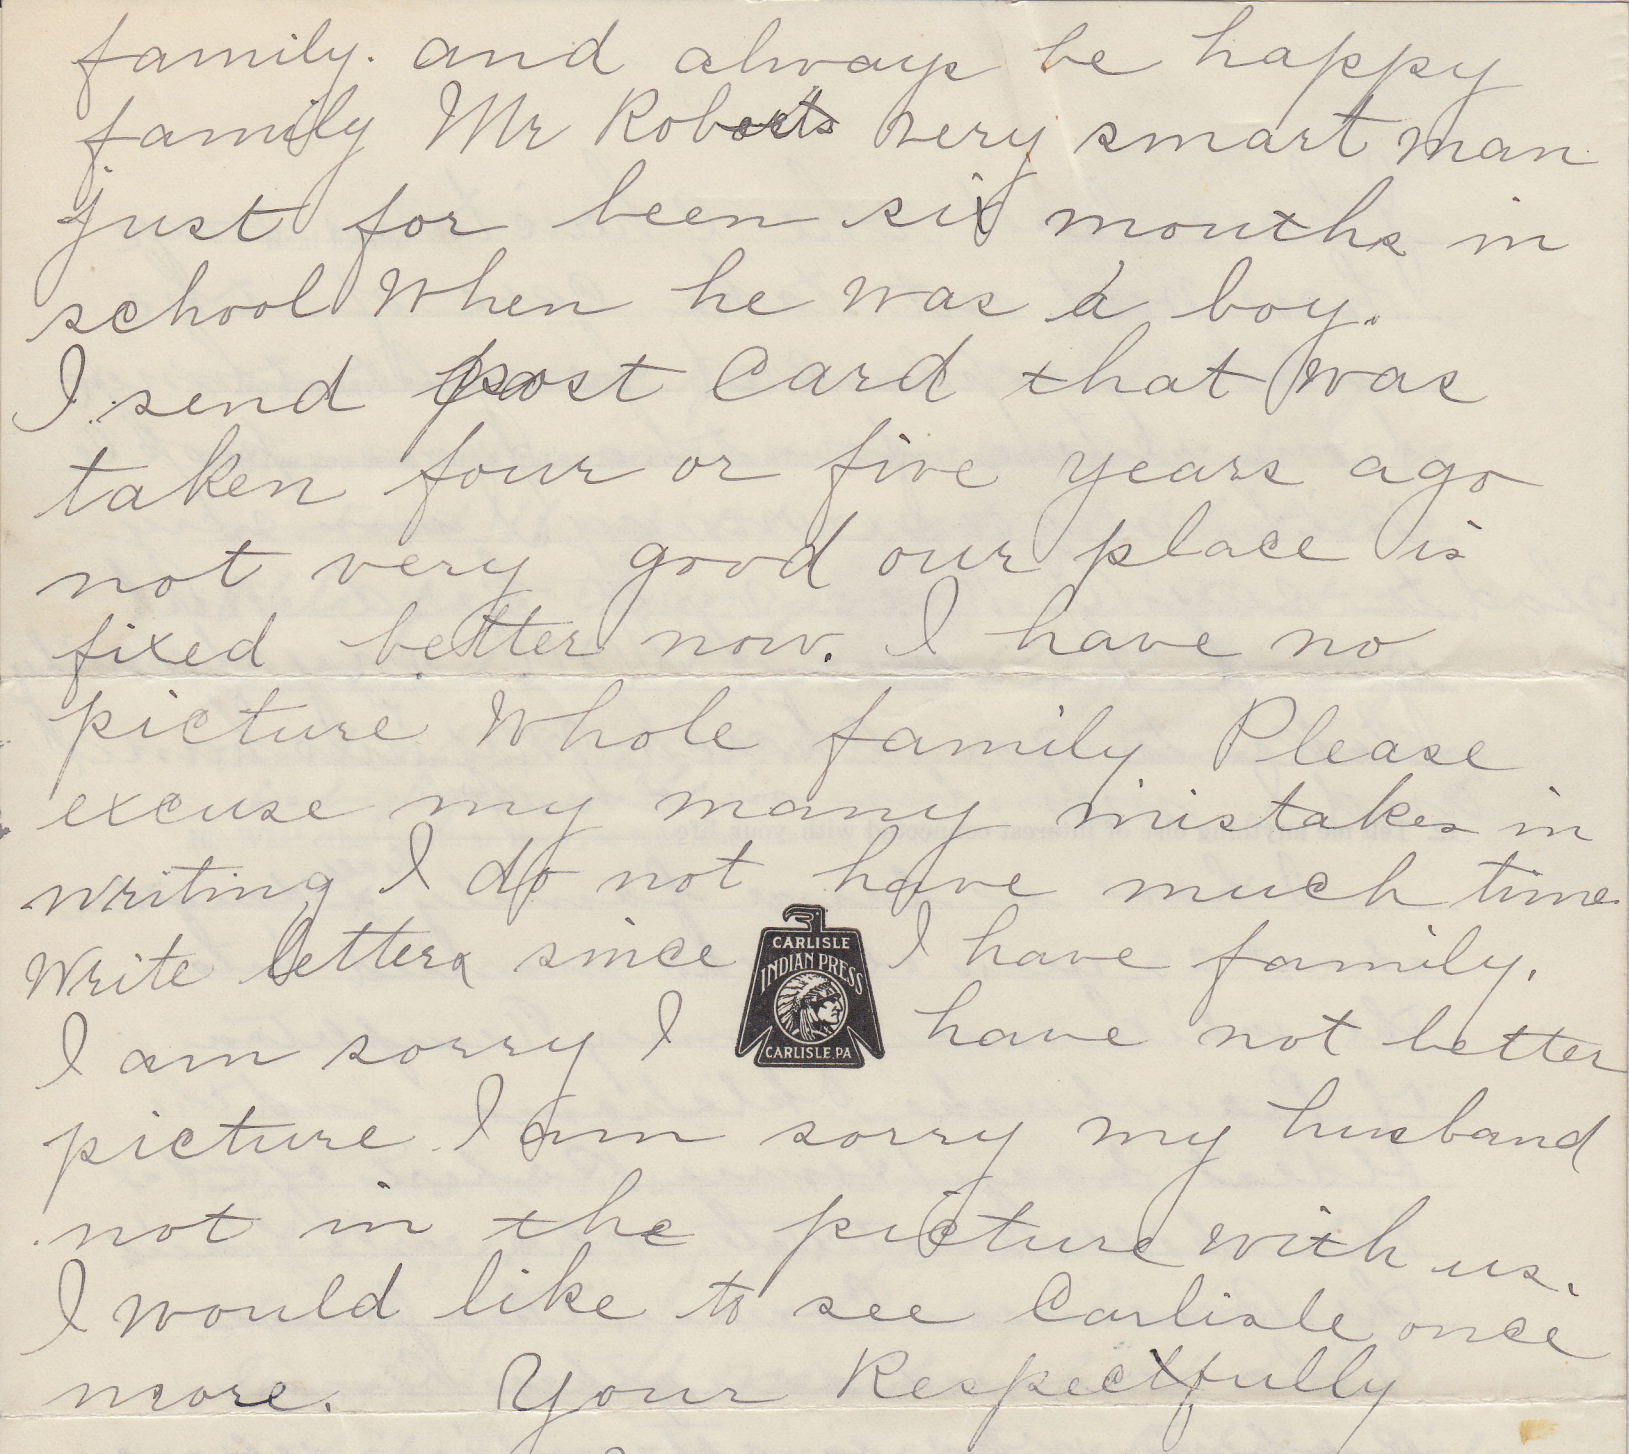 family. and always be happy
family Mr Roberts very smart man
just for been six months in
school When he was a boy.
I send post Card that was
taken four or five years ago
not very good our place is
fixed better now. I have no
picture Whole family Please
excuse my many mistakes in
writing I do not have much time
Write letters since I have family.
CARLISLE
INDIAN PRESS
CARLISLE, PA
I am sorry I have not better
picture. I am sorry my husband
not in the picture with us.
I would like to see Carlisle once
more. Your Respectfully